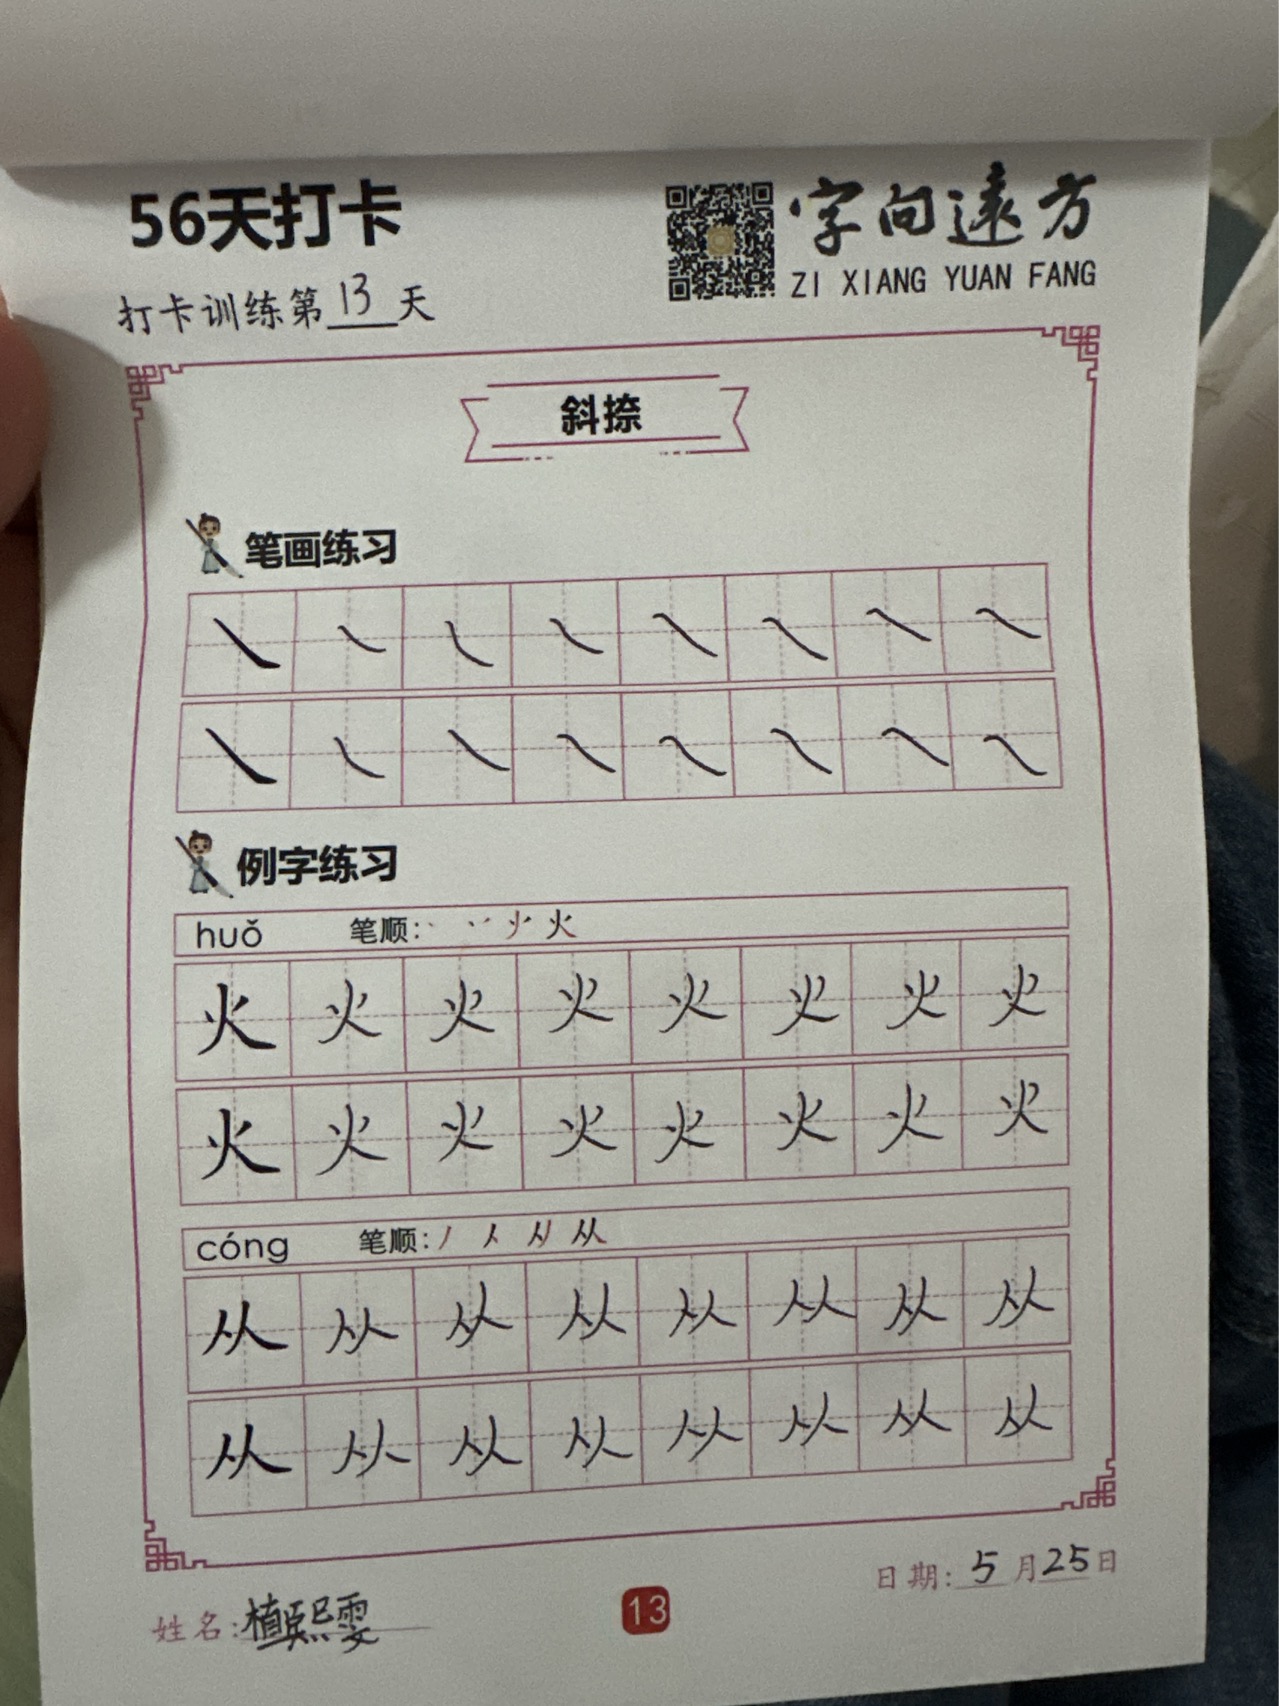 56天打卡
字向遠方
ZI XIANG YUAN FANG
打卡训练第13天
斜捺
笔画练习
㇏ ㇏ ㇏ ㇏ ㇏ ㇏ ㇏ ㇏
㇏ ㇏ ㇏ ㇏ ㇏ ㇏ ㇏ ㇏
例字练习
huǒ 笔顺: 火
火 火 火 火 火 火 火 火
火 火 火 火 火 火 火 火
cóng 笔顺: 丿 人 从
从 从 从 从 从 从 从 从
从 从 从 从 从 从 从 从
日期: 5月25日
姓名: 植熙雯
13